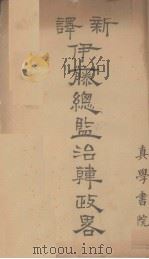 新譯
伊藤總監治韓政畧
真學書院
www.duxiu.com